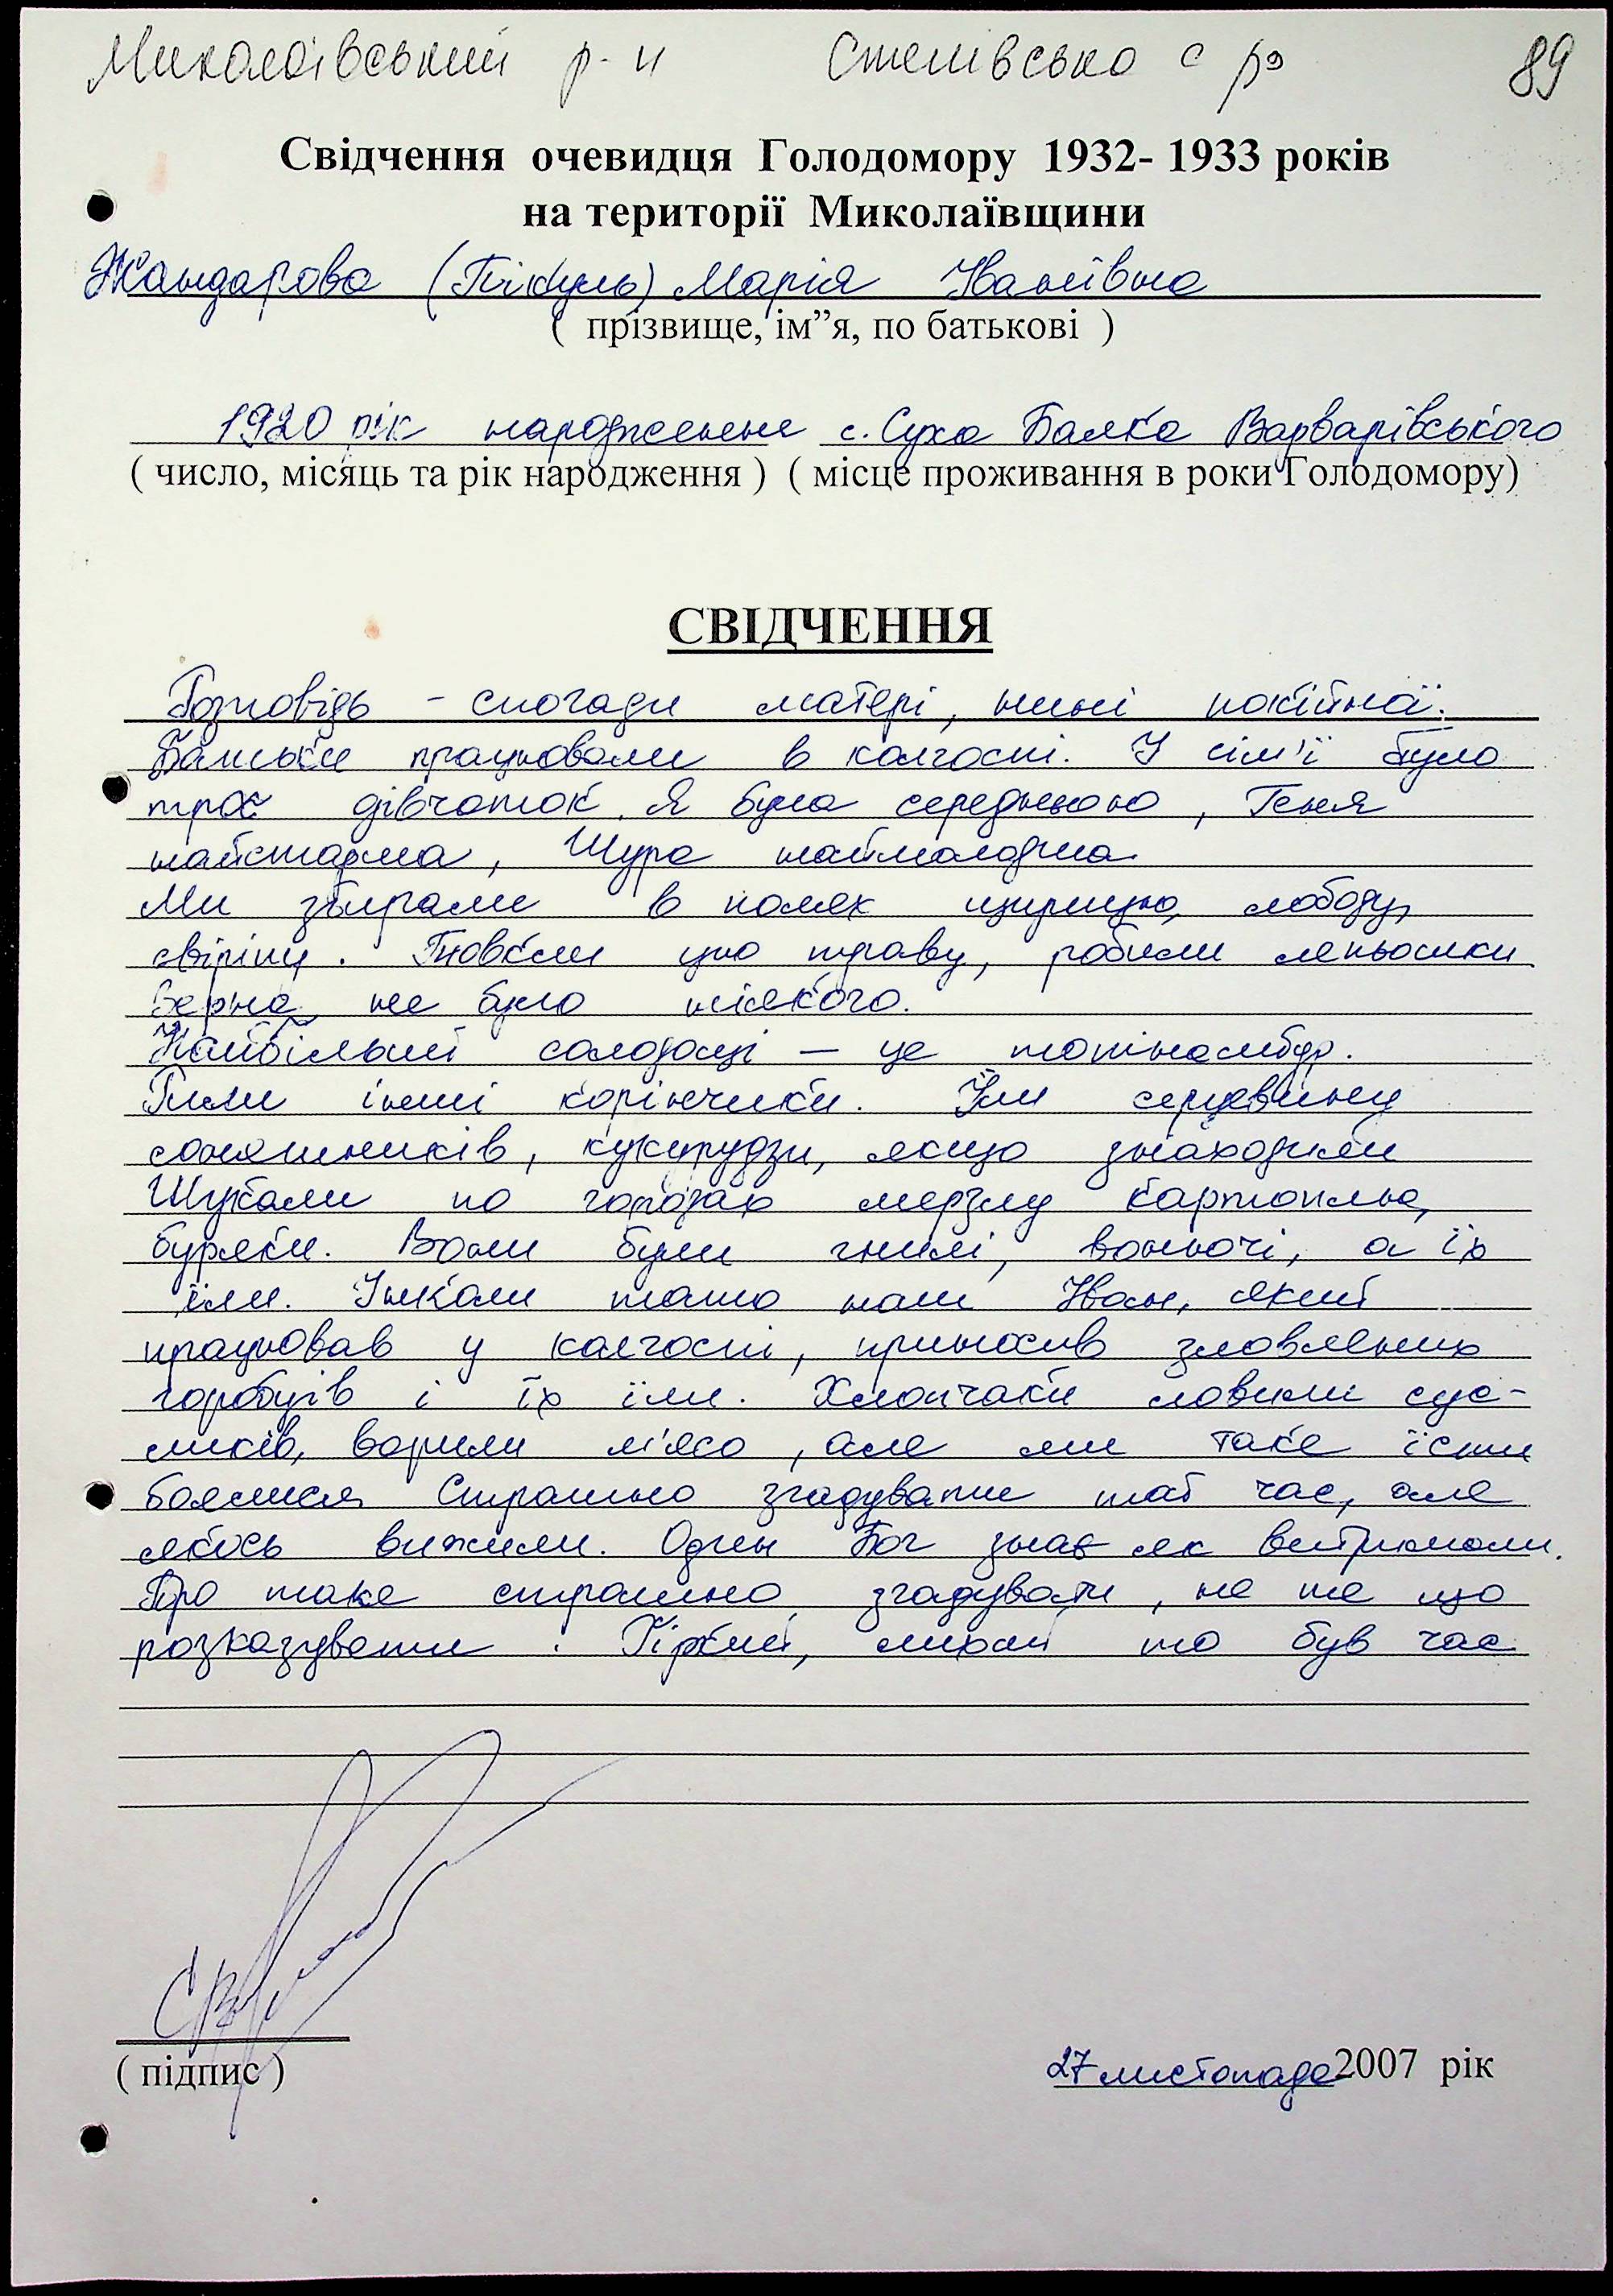 Миколаївський р-н Степівська с ра 89
Свідчення очевидця Голодомору 1932- 1933 років
на території Миколаївщини
Жандарова (Пікуль) Марія Іванівна
( прізвище, ім”я, по батькові )
1920 рік народження с. Суха Балка Варварівського
( число, місяць та рік народження ) ( місце проживання в роки Голодомору)
СВІДЧЕННЯ
Розповідь - спогади матері, нині покійної.
Батьки працювали в колгоспі. У сім'ї було
троє дівчаток. Я була середньою, Геня
найстарша, Шура наймолодша.
Ми збирали в полях щирицю, лободу,
свіріпу. Товкли цю траву, робили ляпьошки
Зерна не було ніякого.
Найбільші солодощі — це топінамбур.
Рили інші корінчики. Їли серцевину
соняшників, кукурудзи, якщо знаходили
Шукали по городах мерзлу картоплю,
буряки. Вони були гнилі, вонючі, а їх
їли. Інколи тато наш Іван, який
працював у колгоспі, приносив зловлених
горобців і їх їли. Хлопчаки ловили сус-
ликів, варили м'ясо, але ми таке їсти
боялися. Страшно згадувати той час, але
якось вижили. Один Бог знає як витримали.
Про таке страшно згадувати, не те що
розказувати. Гіркий, лихий то був час
( підпис )
27 листопада 2007 рік